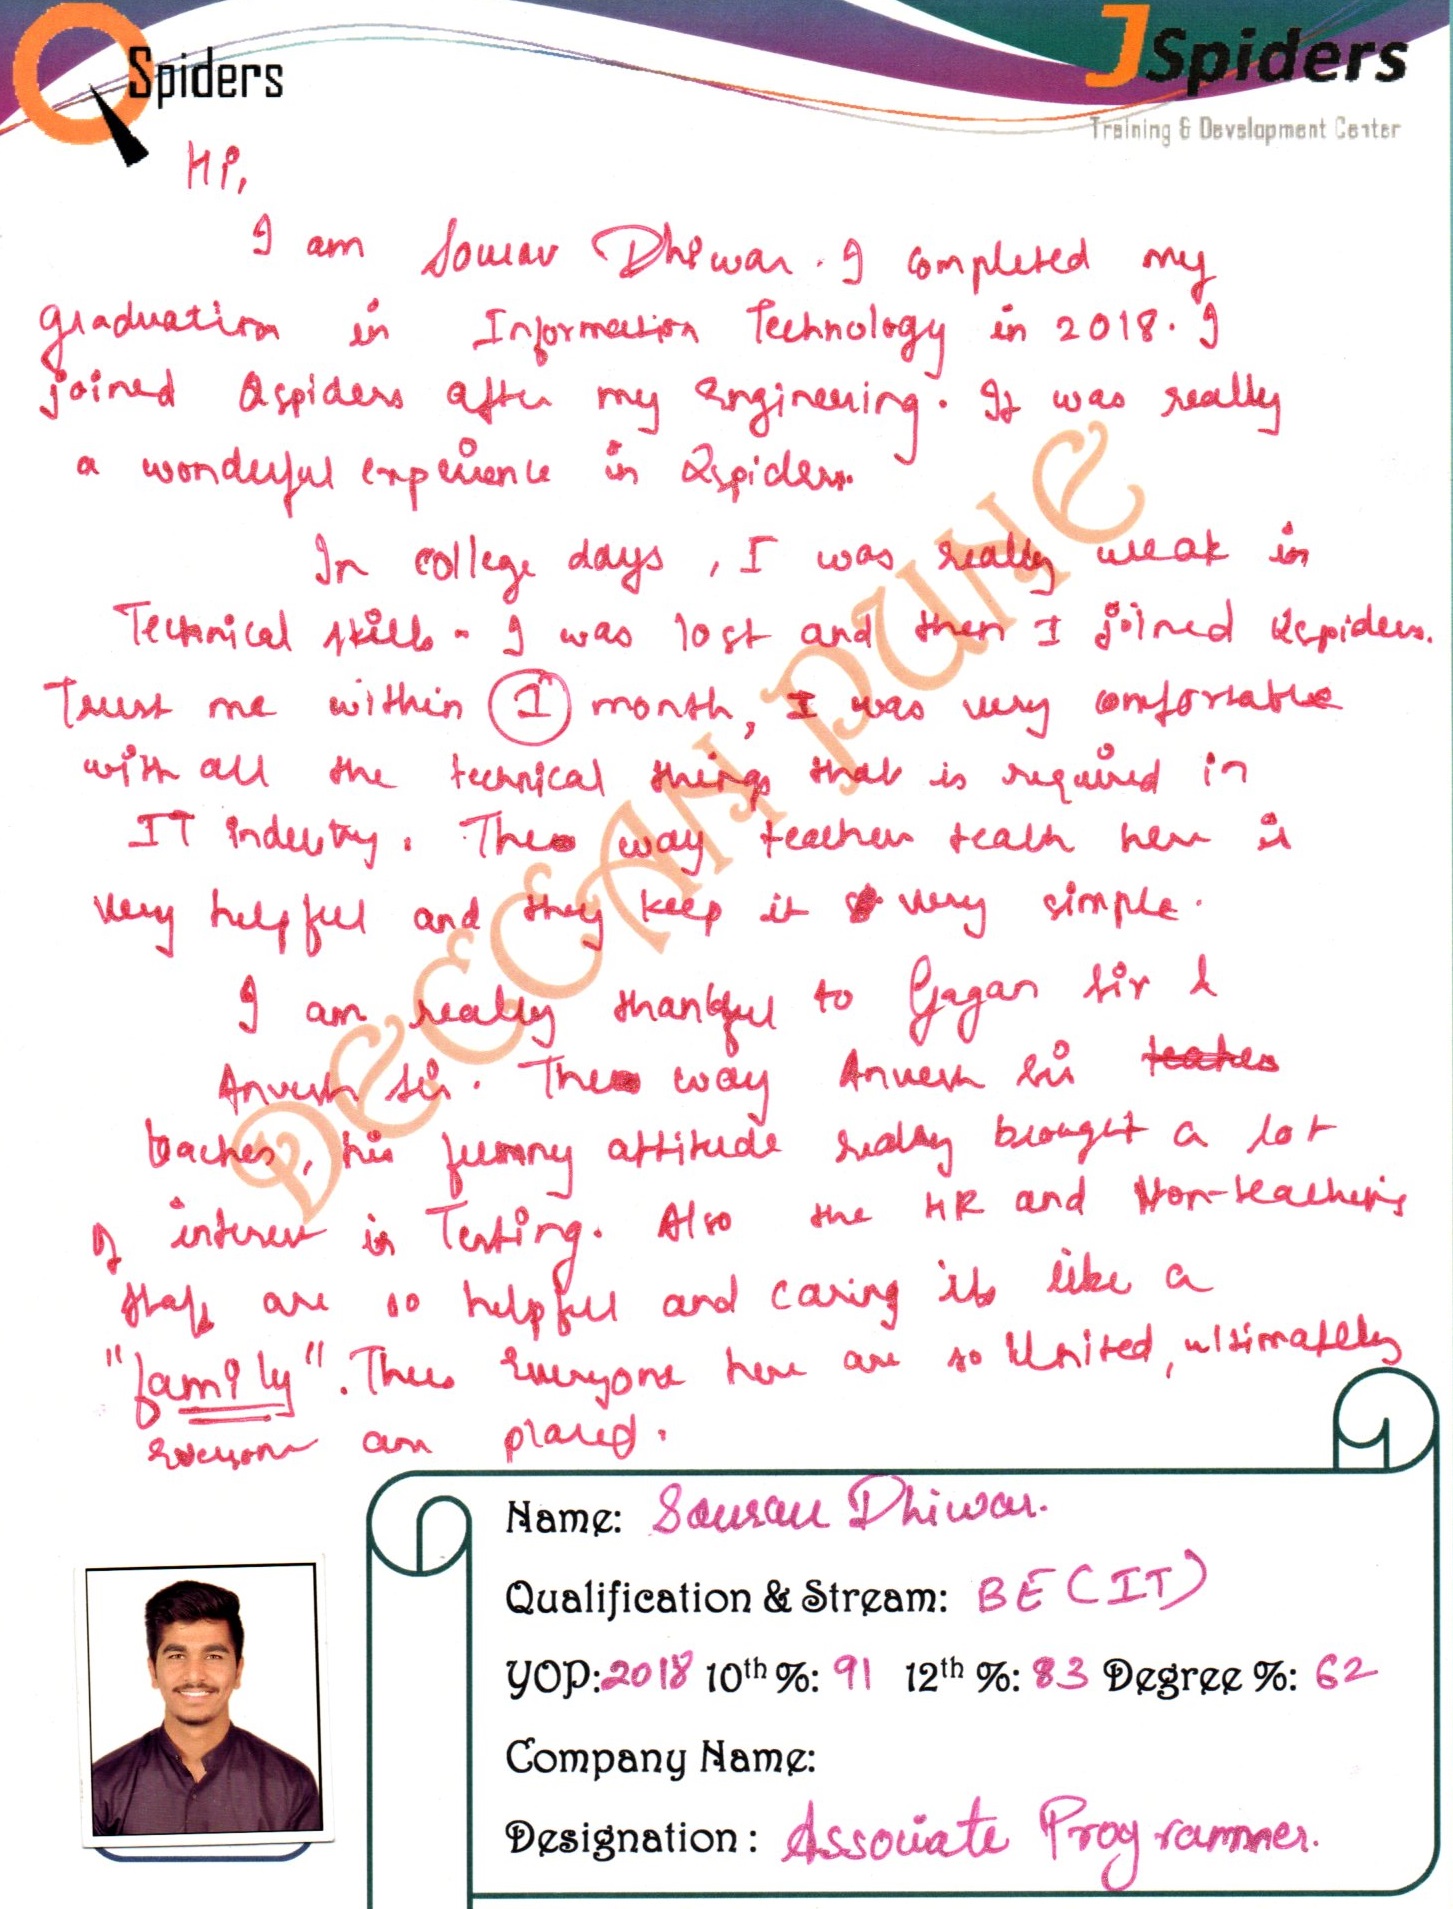 QSpiders
JSpiders
Training & Development Center
Hi,
I am Sourav Dhiwar. I completed my
graduation in Information Technology in 2018. I
joined Qspiders after my Engineering. It was really
a wonderful experience in Qspiders.
In college days, I was really weak in
Technical skills. I was lost and then I joined Qspiders.
Trust me within 1 month, I was very comfortable
with all the technical things that is required in
IT industry. The way teachers teach here is
very helpful and they keep it very simple.
I am really thankful to Gagan Sir &
Anvesh Sir. The way Anvesh Sir teaches
teaches, his funny attitude really brought a lot
of interest in Testing. Also the HR and Non-teaching
staff are so helpful and caring its like a
"family". Thus Everyone here are so United, ultimately
Everyone are placed.
DECCAN PUNE
Name: Sourav Dhiwar.
Qualification & Stream: BE (IT)
YOP: 2018 10th %: 91 12th %: 83 Degree %: 62
Company Name:
Designation : Associate Programmer.